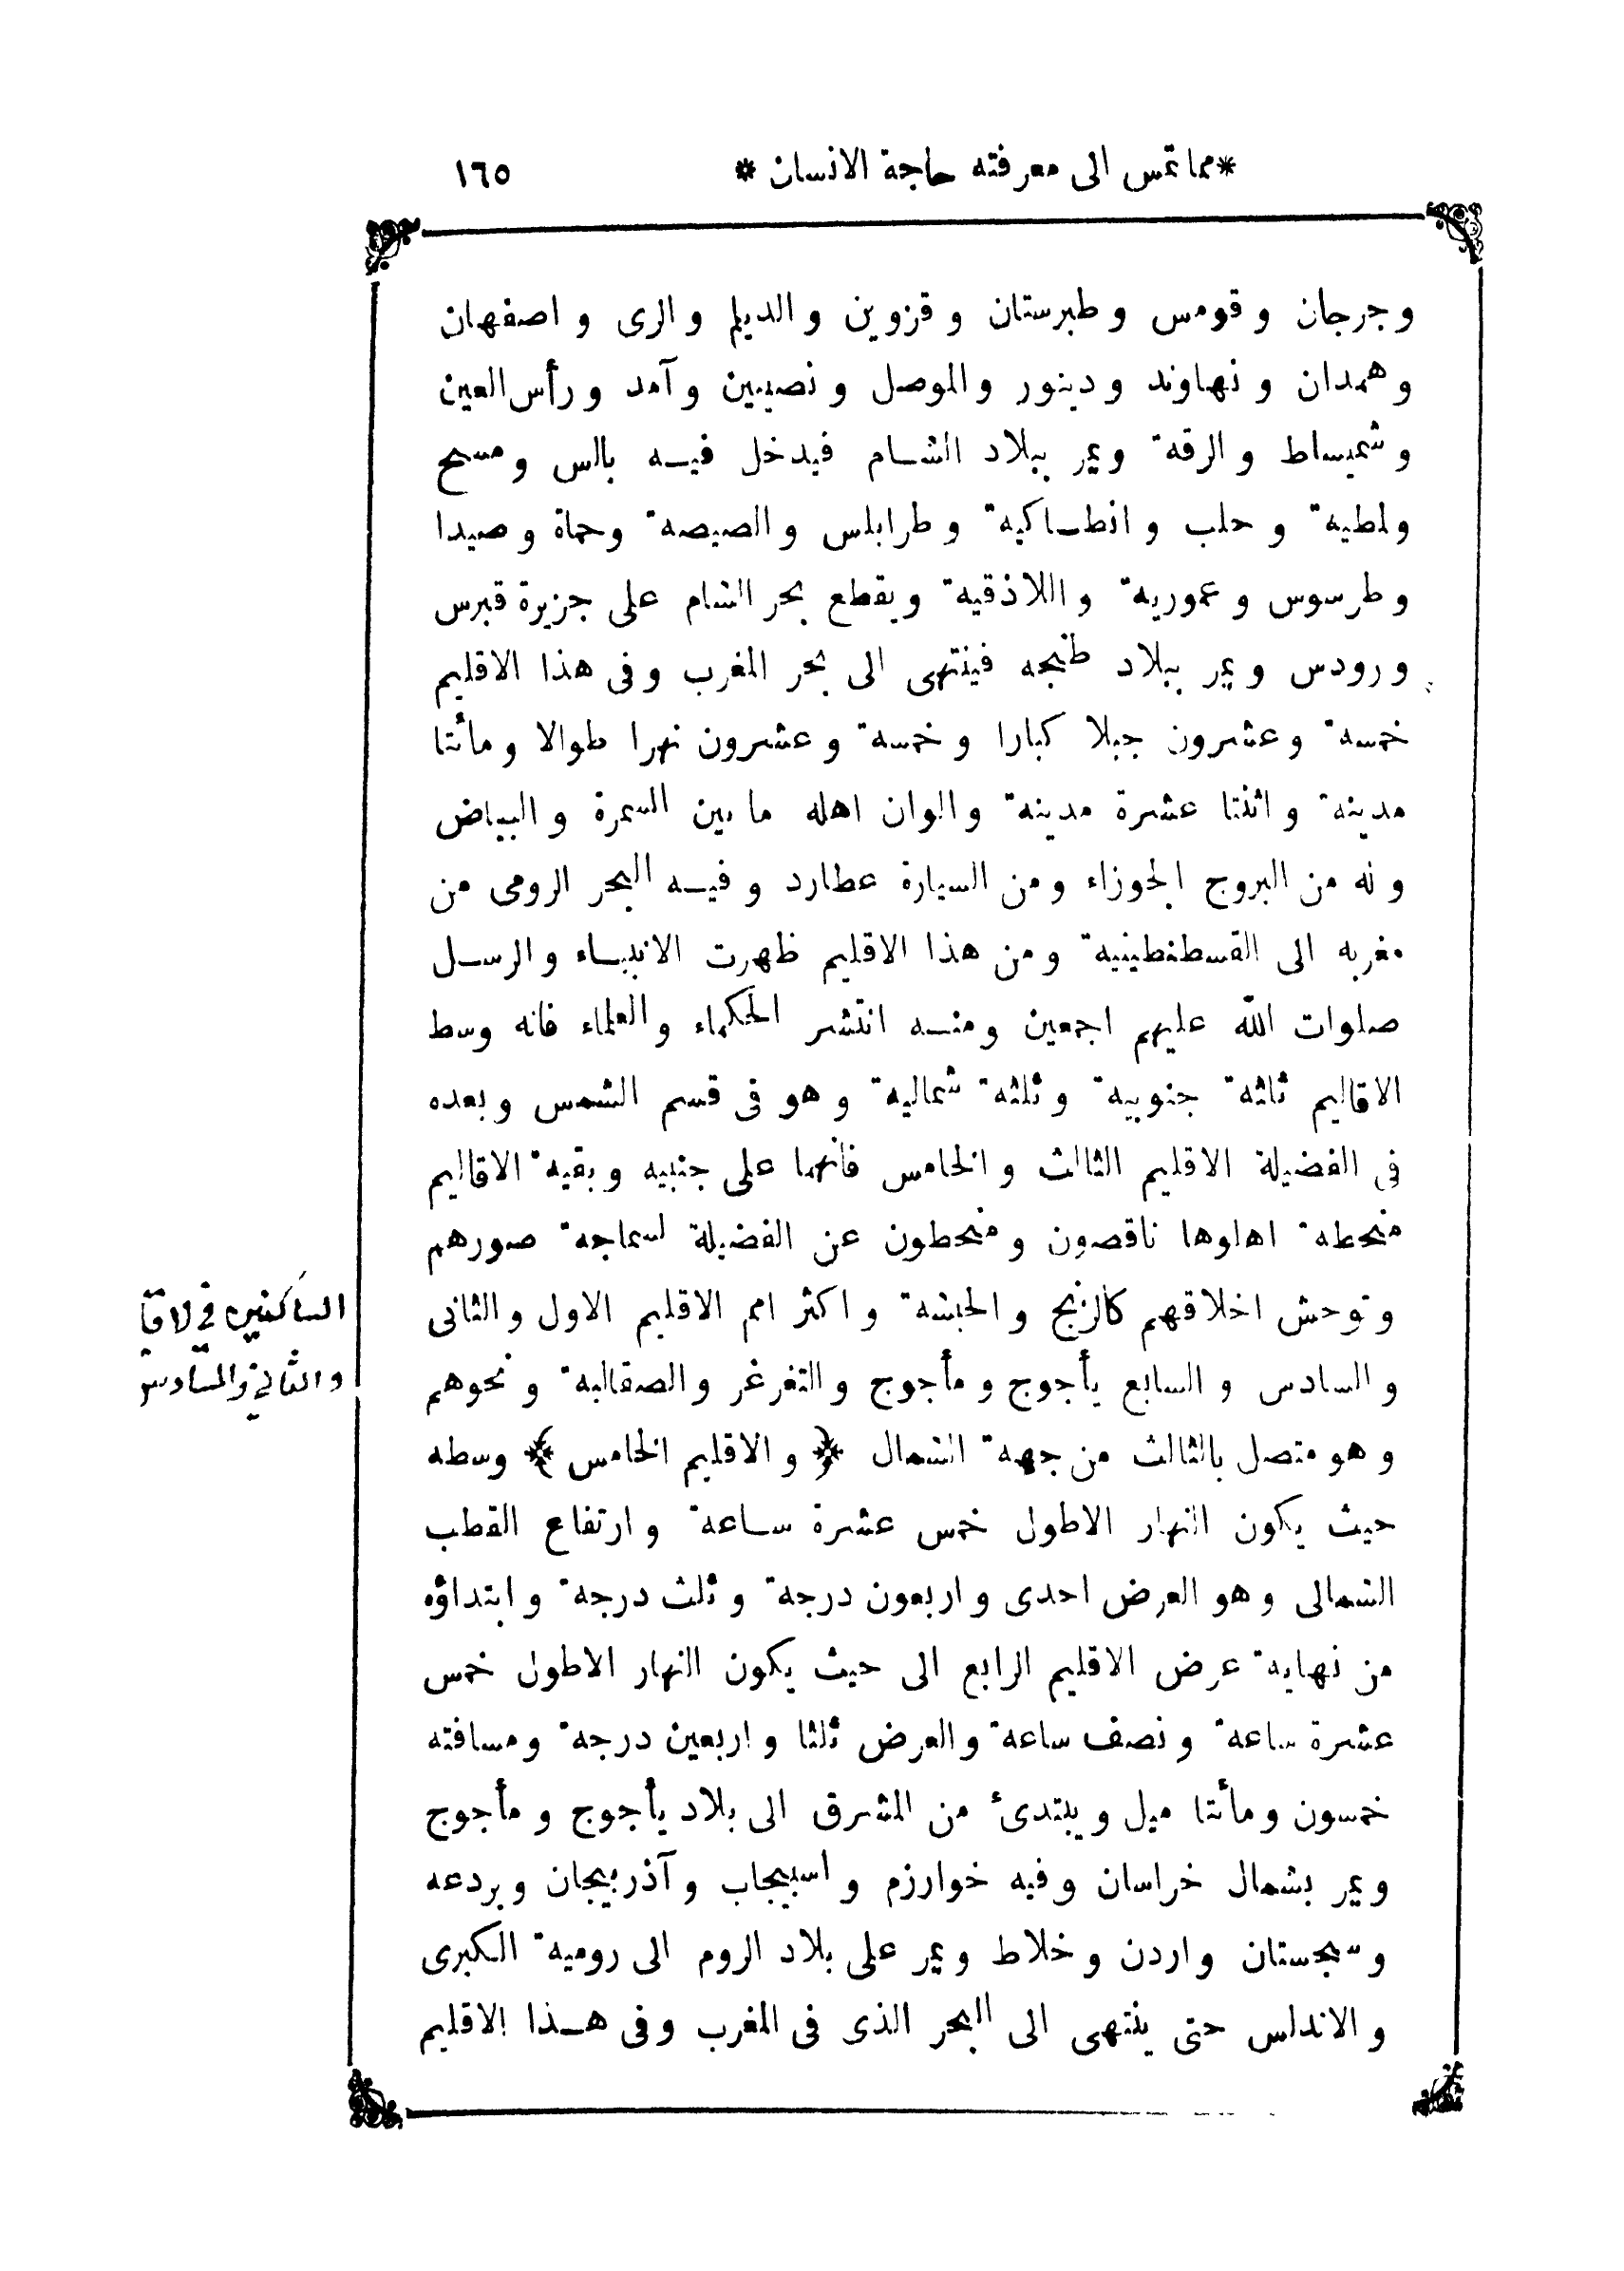 * مما تمس الى معرفته حاجة الانسان * ١٦٥
و جرجان و قومس و طبرستان و قزوين و الديلم و الرى و اصفهان
و همدان و نهاوند و دينور و الموصل و نصيبين و آمد و رأس العين
و شميساط و الرقة و يمر ببلاد الشام فيدخل فيه بالس و مسح
و لمطية و حلب و انطاكية و طرابلس و الصيصة و حماة و صيدا
و طرسوس و عمورية و اللاذقية و يقطع بحر الشام على جزيرة قبرس
و رودس و يمر ببلاد طنجه فينتهى الى بحر المغرب و فى هذا الاقليم
خمسة و عشرون جبلا كبارا و خمسة و عشرون نهرا طوالا و مأتتا
مدينة و اثنتا عشرة مدينة و الوان اهله ما بين السمرة و البياض
و له من البروج الجوزاء و من السيارة عطارد و فيه البحر الرومى من
مغربه الى القسطنطينية و من هذا الاقليم ظهرت الانبياء و الرسل
صلوات الله عليهم اجمعين و منه انتشر الحكماء و العلماء فانه وسط
الاقاليم ثلثة جنوبية و ثلثة شمالية و هو فى قسم الشمس و بعده
فى الفضيلة الاقليم الثالث و الخامس فانهما على جنبيه و بقية الاقاليم
منحطة اهلوها ناقصون و منحطون عن الفضيلة لسماجة صورهم
و توحش اخلاقهم كالزنج و الحبشة و اكثر امم الاقليم الاول و الثانى
الساكنين في لاقا
و السادس و السابع يأجوج و مأجوج و التغرغر و الصقالبة و نحوهم
و الثاني و السادس
و هو متصل بالثالث من جهة الشمال ﴿ و الاقليم الخامس ﴾ وسطه
حيث يكون النهار الاطول خمس عشرة ساعة و ارتفاع القطب
الشمالى و هو العرض احدى و اربعون درجة و ثلث درجة و ابتداؤه
من نهاية عرض الاقليم الرابع الى حيث يكون النهار الاطول خمس
عشرة ساعة و نصف ساعة و العرض ثلثا و اربعين درجة و مسافته
خمسون و مأتتا ميل و يبتدئ من المشرق الى بلاد يأجوج و مأجوج
و يمر بشمال خراسان و فيه خوارزم و اسبيجاب و آذربيجان و بردعه
و سجستان و اردن و خلاط و يمر على بلاد الروم الى رومية الكبرى
و الاندلس حتى ينتهى الى البحر الذى فى المغرب و فى هذا الاقليم